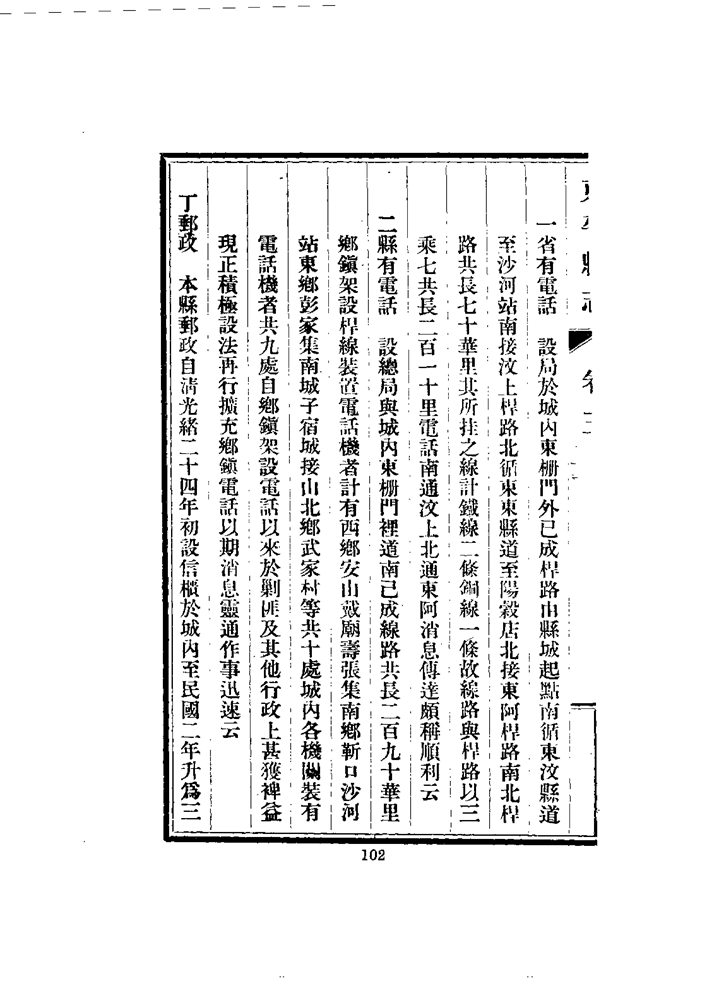 縣志
卷
一省有電話　設局於城內東柵門外已成桿路由縣城起點南循東汶縣道
至沙河站南接汶上桿路北循東東縣道至陽穀店北接東阿桿路南北桿
路共長七十華里其所挂之線計鐵線二條銅線一條故線路與桿路以三
乘七共長二百一十里電話南通汶上北通東阿消息傳達頗稱順利云
二縣有電話　設總局與城內東柵門裡道南已成線路共長二百九十華里
鄉鎮架設桿線裝置電話機者計有西鄉安山戴廟壽張集南鄉靳口沙河
站東鄉彭家集南城子宿城接山北鄉武家村等共十處城內各機關裝有
電話機者共九處自鄉鎮架設電話以來於剿匪及其他行政上甚獲裨益
現正積極設法再行擴充鄉鎮電話以期消息靈通作事迅速云
丁郵政　本縣郵政自清光緒二十四年初設信櫃於城內至民國二年升爲三
102